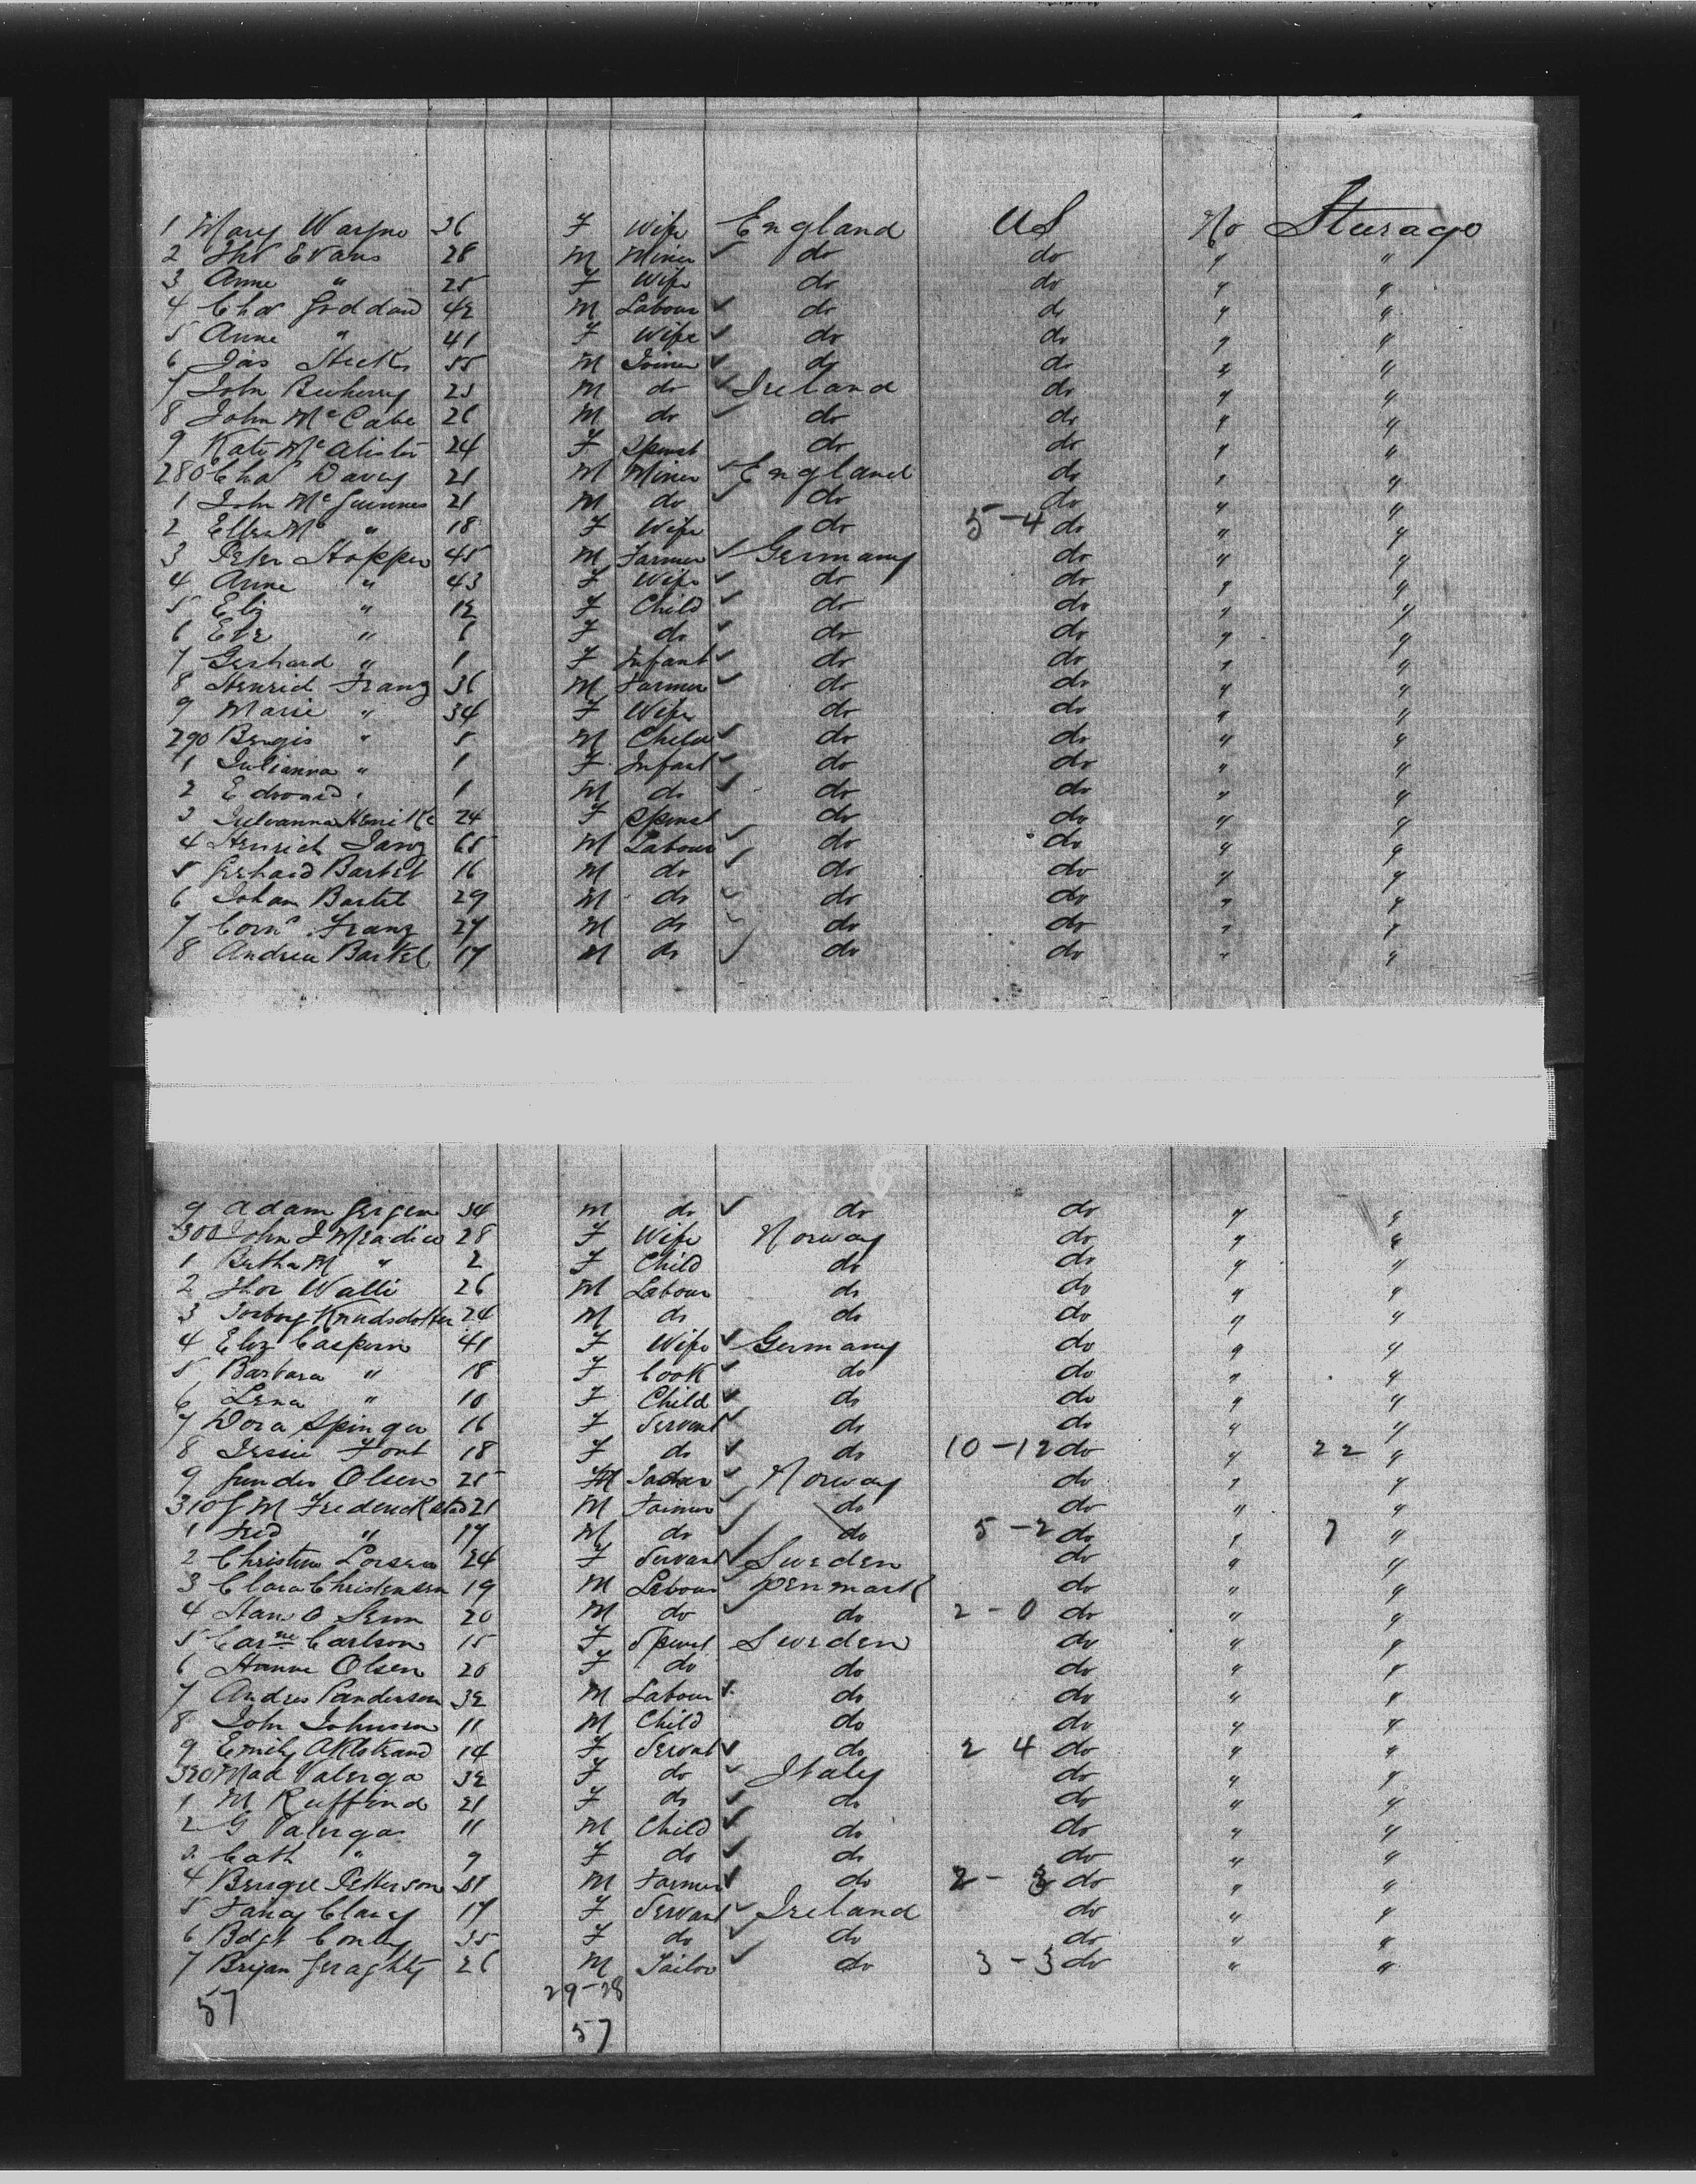 1 Mary Warfne 36 F Wife England US No Sturage
2 Thos Evans 28 M Miner do do " "
3 Anne " 25 F Wife do do " "
4 Chas Goddard 42 M Labour do do " "
5 Anne " 41 F Wife do do " "
6 Jas Hecks 55 M Joiner do do " "
7 John 25 M do Ireland do " "
8 John McCabe 26 M do do do " "
9 Kate McAlister 24 F Spinst do do " "
280 Chas Davey 21 M Miner England do " "
1 John McGuinnes 21 M do do do " "
2 Ellen Mc " 18 F Wife do 5-4 do " "
3 Peter Stoppen 45 M Farmer Germany do " "
4 Anne " 43 F Wife do do " "
5 Eliz " 12 F Child do do " "
6 Eve " 6 F do do do " "
7 Gerhard " 1 F Infant do do " "
8 Henrich Franz 36 M Farmer do do " "
9 Marie " 34 F Wife do do " "
290 " 5 M Child do do " "
1 Julianna " 1 F Infant do do " "
2 1 M do do do " "
3 24 F Spinst do do " "
4 Henrich Janz 65 M Labour do do " "
5 Gerhard Bartel 16 M do do do " "
6 Johan Bartel 29 M do do do " "
7 Corns Franz 27 M do do do " "
8 Andrea Bartel 17 M do do do " "
9 Adam Gergen 34 M do do do " "
300 John 28 F Wife Norway do " "
1 Bertha M " 2 F Child do do " "
2 Thor Walli 26 M Labour do do " "
3 Torborg Knudsdotter 24 M do do do " "
4 Eliz Caspern 41 F Wife Germany do " "
5 Barbara " 18 F Cook do do " "
6 Lena " 10 F Child do do " "
7 Dora Spinger 16 F Servant do do " "
8 Jessie Font 18 F do do 10-12 do " 22 "
9 Gunder Olsen 25 M Norway do " "
310 J M Frederickstad 21 M Farmer do do " "
1 Fred " 17 M do do 5-2 do " 7 "
2 Christine Lorsen 24 F Servant Sweden do " "
3 Clara Christensen 19 M Labour Denmark do " "
4 Hans O 20 M do do 2-0 do " "
5 Carne Carlson 15 F Spinst Sweden do " "
6 Hanne Olsen 20 F do do do " "
7 Andres Panderson 32 M Labour do do " "
8 John Johnson 11 M Child do do " "
9 Emily Ahlstrand 14 F Servant do 2 4 do " "
320 Mad Valerga 32 F do Italy do " "
1 M Ruffino 21 F do do do " "
2 G Valerga 11 M Child do do " "
3 Cath " 9 F do do do " "
4 Petterson 31 M Farmer do 2-3 do " "
5 Fancy Clancy 17 F Servant Ireland do " "
6 Bdgt 35 F do do do " "
7 Bryan Geraghty 26 M Tailor do 3-3 do " "
57 29-28
57